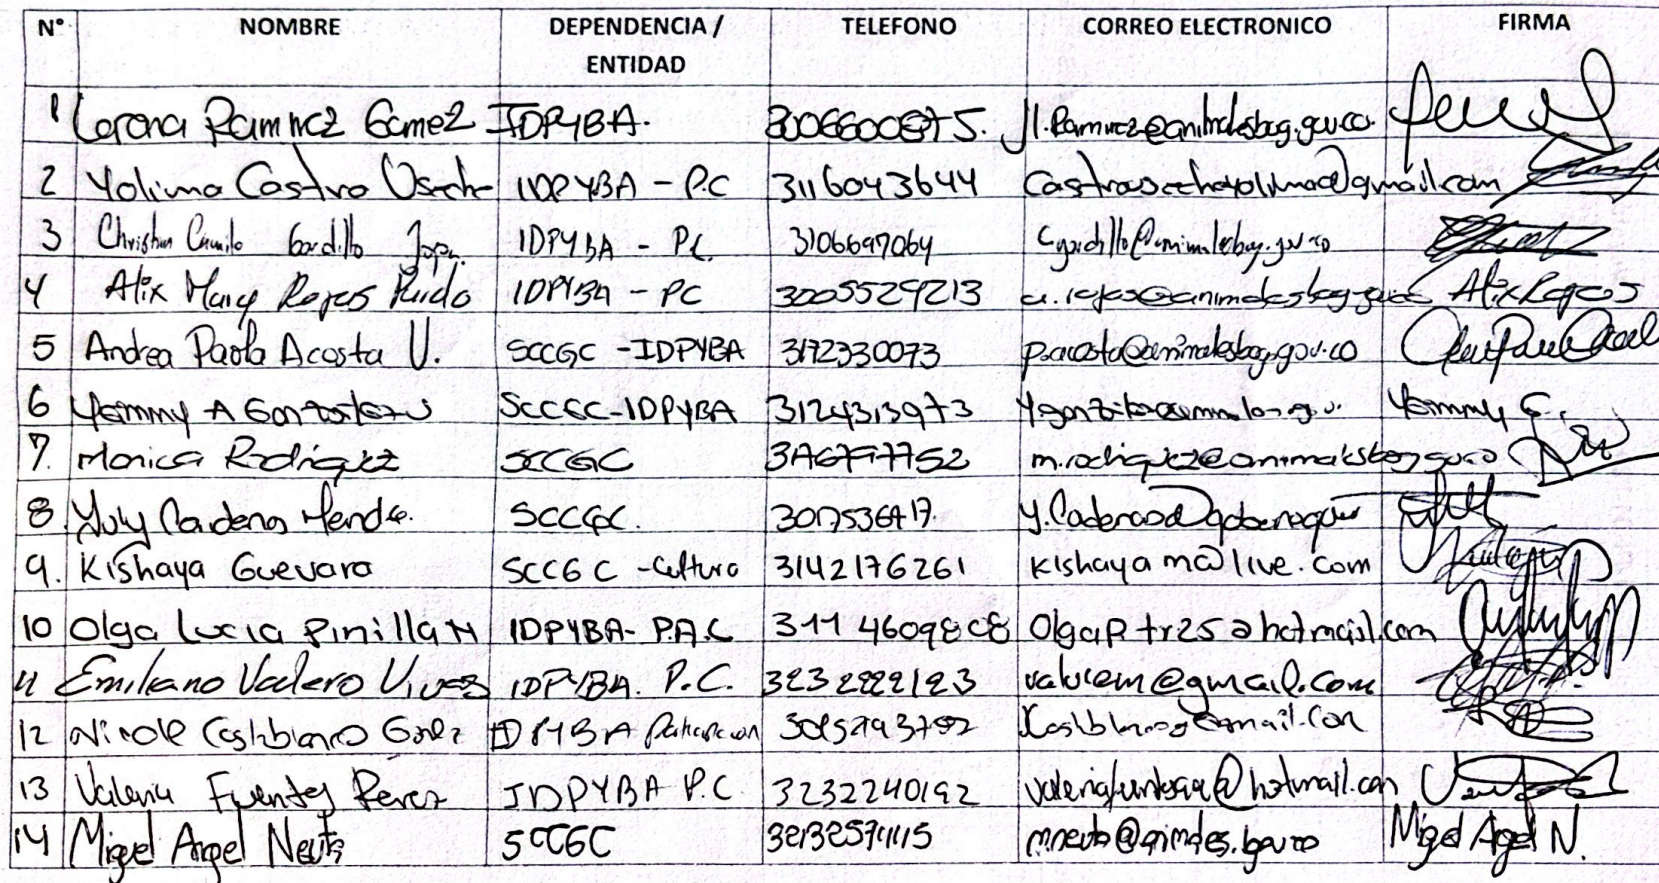 N° NOMBRE DEPENDENCIA / ENTIDAD TELEFONO CORREO ELECTRONICO FIRMA
1 Lorena Ramirez Gamez IDPYBA. 3006600875. jl.Ramirez@animalesbog.gov.co
2 Yolima Castro Useche IDPYBA - P.C 3116043644 Castrousecheyolima@gmail.com
3 Christian Camilo Gordillo IDPYBA - P.C. 3106697064 cgordillo@animalesbog.gov.co
4 Alix Mary Rojas Pulido IDPYBA - PC 3005529213 a.rojas@animalesbog.gov.co Alix Rojas
5 Andrea Paola Acosta U. SCCGC - IDPYBA 3172330073 p.acosta@animalesbog.gov.co
6 Yemmy A SCCGC-IDPYBA 3124313973 Yemmy G.
7. Monica Rodriguez SCCGC m.rodriguez@animalesbog.gov.co
8 Yuly Cardenas Mende SCCGC.
9. Kishaya Guevara SCCGC - Cultura 3142176261 kishayam@live.com
10 Olga Lucia Pinilla M IDPYBA- P.A.C 311 4609808 Olgaptr25@hotmail.com
11 Emiliano Valero Vives IDPYBA. P.C. 3232222123 valerem@gmail.com
12 Nicole Castiblanco IDPYBA Participacion
13 Valeria Fuentes Perez IDPYBA P.C. 3232240192 @hotmail.com
14 Migel Angel Neuta SCCGC Migel Angel N.